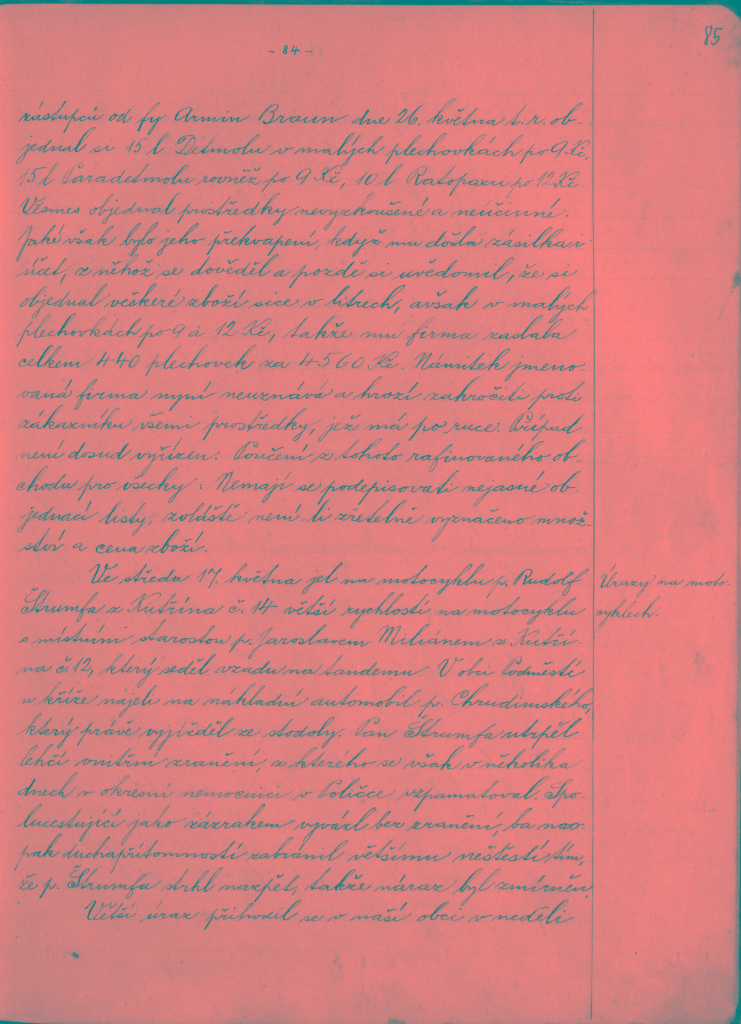 - 84 -
85
zástupců od fy Armin Braun dne 26. května t. r. ob-
jednal si 15 l Detmolu v malých plechovkách po 9 Kč,
15 l Paradetmolu rovněž po 9 Kč, 10 l Ratopaxu po 12 Kč.
Vesměs objednal prostředky nevyzkoušené a neúčinné.
Jaké však bylo jeho překvapení, když mu došla zásilka i
účet, z něhož se dověděl a pozdě si uvědomil, že si
objednal veškeré zboží sice v litrech, avšak v malých
plechovkách po 9 a 12 Kč, takže mu firma zaslala
celkem 440 plechovek za 4560 Kč. Námitek jmeno-
vaná firma nyní neuznává a hrozí zakročiti proti
zákazníku všemi prostředky, jež má po ruce. Případ
není dosud vyřízen. Poučení z tohoto rafinovaného ob-
chodu pro všecky: Nemají se podepisovati nejasné ob-
jednací listy, zvláště není-li zřetelně vyznačeno množ-
ství a cena zboží.
Ve středu 17. května jel na motocyklu p. Rudolf
Štrumfa z Kutřína č. 14 větší rychlostí na motocyklu
s místním starostou p. Jaroslavem Miliánem z Kutří-
na č. 12, který seděl vzadu na tandemu. V obci Podměstí
u kříže najeli na nákladní automobil p. Chrudimského,
který právě vyjížděl ze stodoly. Pan Štrumfa utrpěl
lehčí vnitřní zranění, z kterého se však v několika
dnech v okresní nemocnici v Poličce vzpamatoval. Spo-
lucestující jako zázrakem vyvázl bez zranění, ba nao-
pak duchapřítomností zabránil většímu neštěstí tím,
že p. Štrumfu strhl nazpět, takže náraz byl zmírněn.
Větší úraz přihodil se v naší obci v neděli
Úrazy na moto-
cyklech.